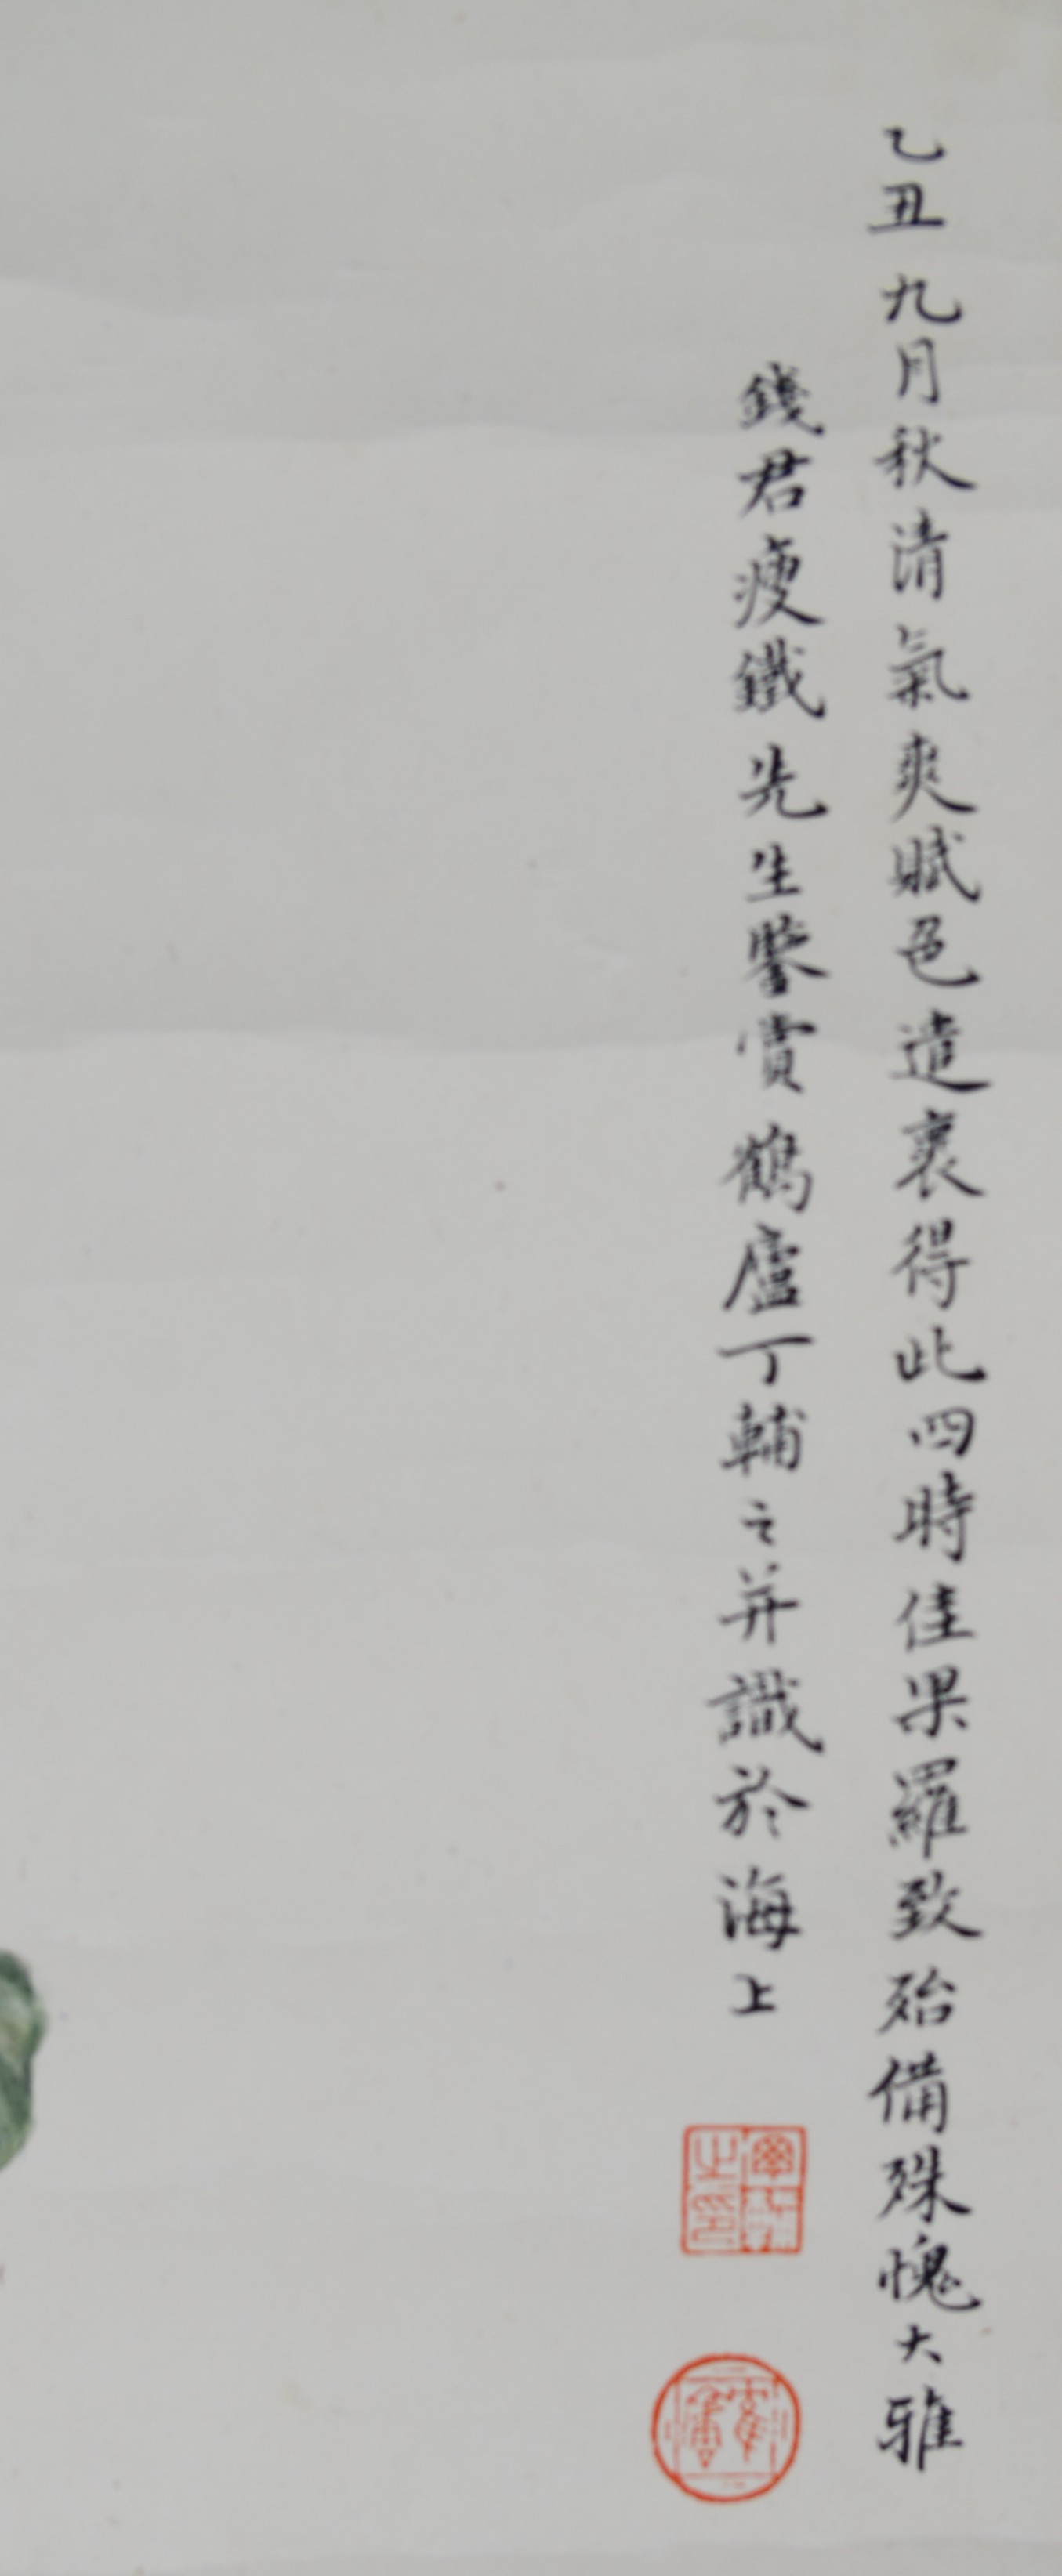 乙丑九月秋清氣爽賦色遣裏得此四時佳果羅致殆備殊愧大雅
錢君瘦鐵先生鑒賞鶴廬丁輔之并識於海上